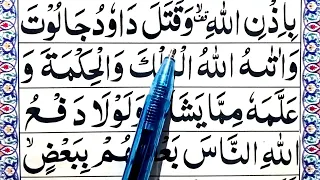 بِاِذْنِ اللّٰهِ ۙ۫ وَقَتَلَ دَاوٗدُ جَالُوْتَ
وَاٰتٰىهُ اللّٰهُ الْمُلْكَ وَالْحِكْمَةَ وَ
عَلَّمَهٗ مِمَّا يَشَآءُ وَلَوْلَا دَفْعُ
اللّٰهِ النَّاسَ بَعْضَهُمْ بِبَعْضٍ ۙ